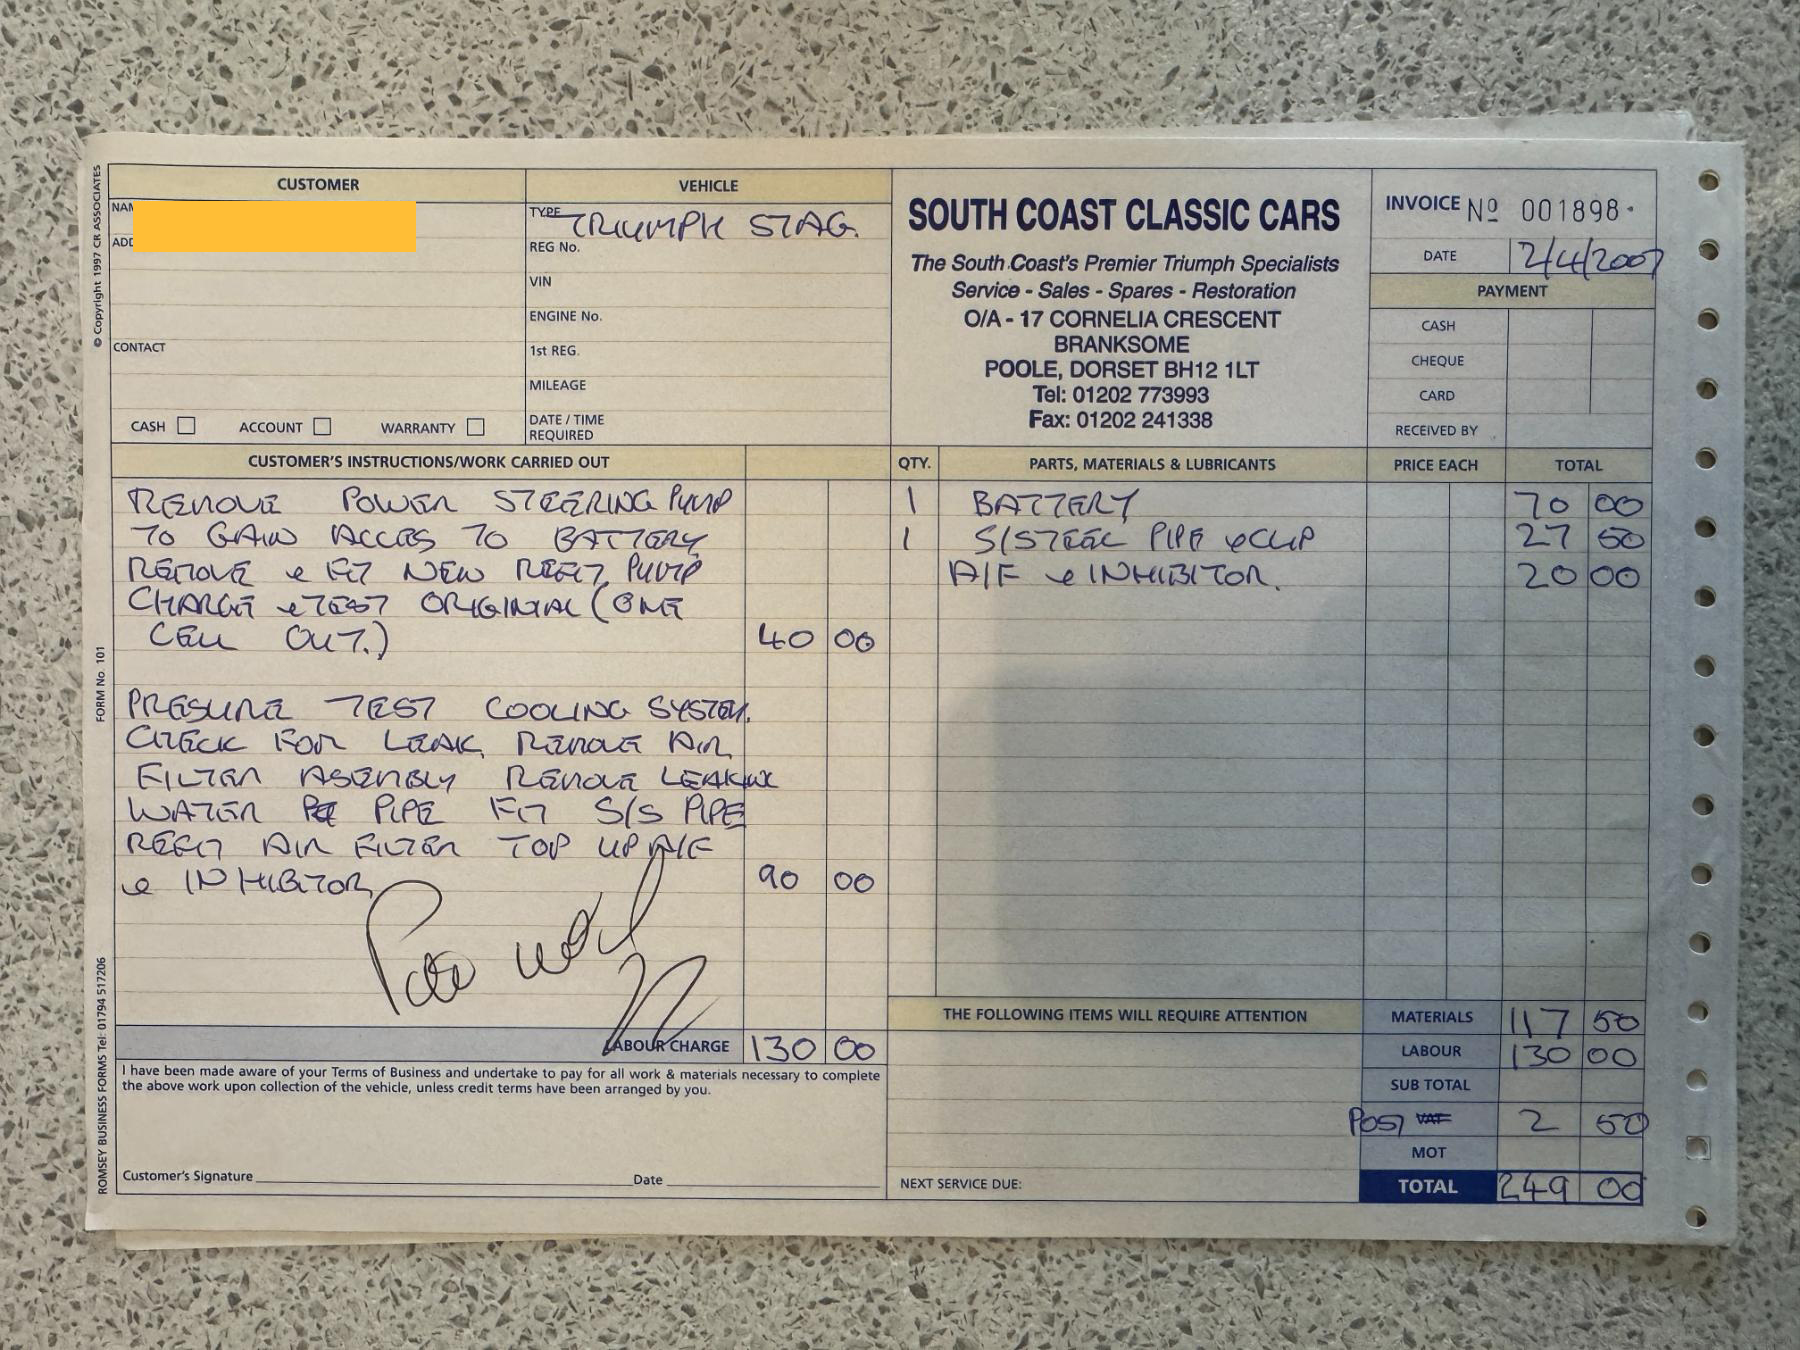 CUSTOMER
NAM
ADD
CONTACT
CASH ACCOUNT WARRANTY
VEHICLE
TYPE TRIUMPH STAG.
REG No.
VIN
ENGINE No.
1st REG.
MILEAGE
DATE / TIME
REQUIRED
SOUTH COAST CLASSIC CARS
The South Coast's Premier Triumph Specialists
Service - Sales - Spares - Restoration
O/A - 17 CORNELIA CRESCENT
BRANKSOME
POOLE, DORSET BH12 1LT
Tel: 01202 773993
Fax: 01202 241338
INVOICE Nº 001898
DATE 2/4/2007
PAYMENT
CASH
CHEQUE
CARD
RECEIVED BY
CUSTOMER'S INSTRUCTIONS/WORK CARRIED OUT
REMOVE POWER STEERING PUMP
TO GAIN ACCES TO BATTERY
REMOVE & FIT NEW REFIT PUMP
CHARGE & TEST ORIGINAL (ONE
CELL OUT.) 40 00
PRESURE TEST COOLING SYSTEM.
CHECK FOR LEAK REMOVE AIR
FILTER ASEMBLY REMOVE LEAKING
WATER PIPE FIT S/S PIPE
REFIT AIR FILTER TOP UP A/F
& INHIBITOR 90 00
LABOUR CHARGE 130 00
I have been made aware of your Terms of Business and undertake to pay for all work & materials necessary to complete
the above work upon collection of the vehicle, unless credit terms have been arranged by you.
Customer's Signature Date
QTY. PARTS, MATERIALS & LUBRICANTS PRICE EACH TOTAL
1 BATTERY 70 00
1 S/STEEL PIPE & CLIP 27 50
A/F & INHIBITOR. 20 00
THE FOLLOWING ITEMS WILL REQUIRE ATTENTION
NEXT SERVICE DUE:
MATERIALS 117 50
LABOUR 130 00
SUB TOTAL
POST VAT 2 50
MOT
TOTAL 249 00
© Copyright 1997 CR ASSOCIATES
FORM No. 101
ROMSEY BUSINESS FORMS Tel: 01794 517206